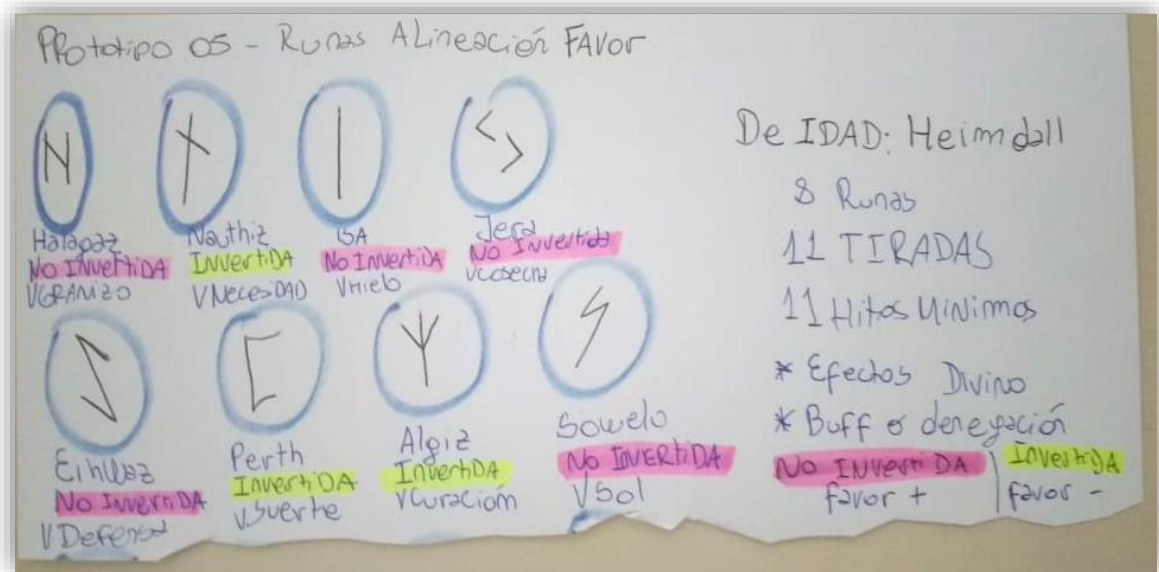 Prototipo 05 - Runas Alineación Favor
Halagaz
No InvertiDA
VGRANIZO
Nauthiz
InvertiDA
VNecesDAD
ISA
No InvertiDA
VHielo
Jera
No Invertida
VCosecha
Eihuaz
No InvertiDA
VDefensa
Perth
InvertiDA
V.Suerte
Algiz
InvertiDA
VCuraciom
Sowelo
No INVERTiDA
VSol
DeIDAD: Heimdall
8 Runas
11 TIRADAS
11 Hitos MiNimos
* Efectos Divino
* Buff o denegación
No InvertiDA
favor +
InvertiDA
favor -